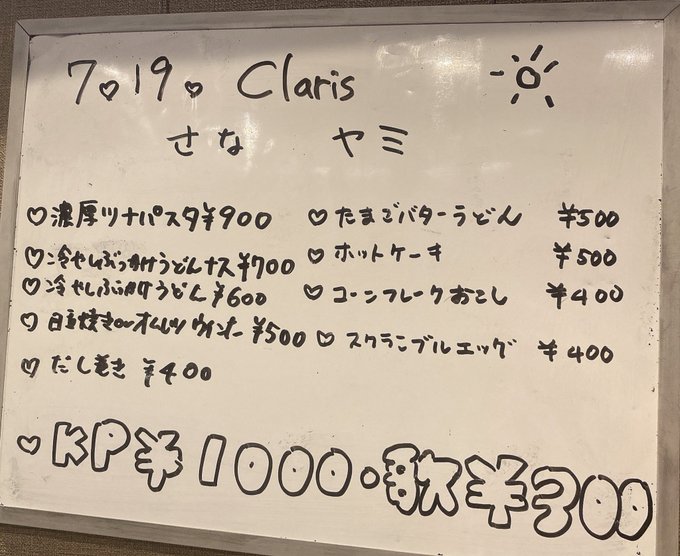 7♡19♡ Claris
さな ヤミ
♡濃厚ツナパスタ¥900
♡冷やしぶっかけうどんナス¥700
♡冷やしぶっかけうどん¥600
♡目玉焼きorオムレツ ウィンナー¥500
♡だし巻き ¥400
♡たまごバターうどん ¥500
♡ホットケーキ ¥500
♡コーンフレークおこし ¥400
♡スクランブルエッグ ¥400
♡KP¥1000・歌¥300